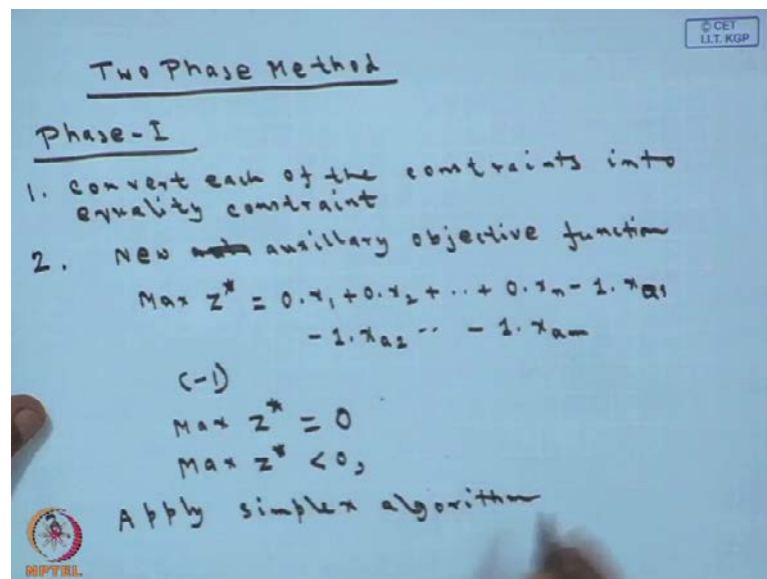 © CET
I.I.T. KGP
Two Phase Method
Phase-I
1. Convert each of the constraints into
equality constraint
2. New auxillary objective function
Max z* = 0.x₁ + 0.x₂ + .. + 0.xₙ - 1.xₐ₁
- 1.xₐ₂ .. - 1.xₐₘ
(-1)
Max z* = 0
Max z* < 0,
Apply simplex algorithm
NPTEL